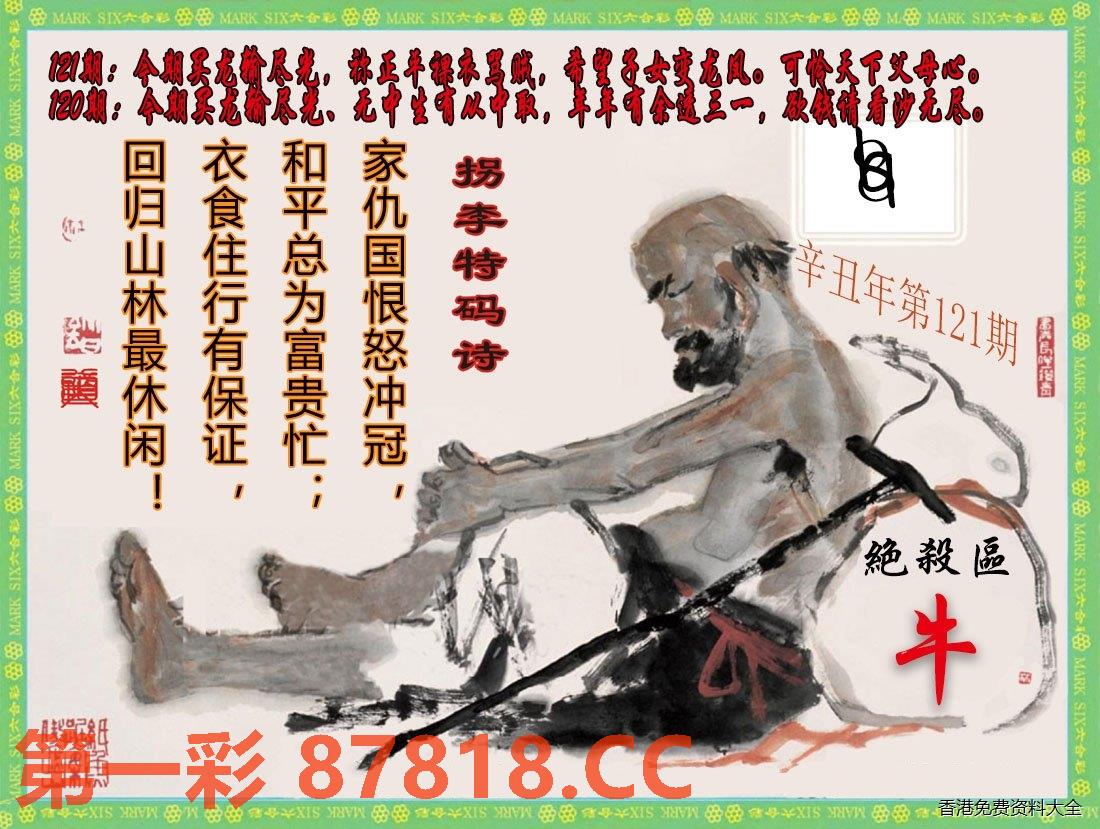 MARK SIX六合彩
121期：今期买龙输尽光，祢正平裸衣骂贼，希望子女变龙凤。可怜天下父母心。
120期：今期买龙输尽光、无中生有从中取，年年有余透三一，欲钱请看沙无尽。
拐李特码诗
家仇国恨怒冲冠，
和平总为富贵忙；
衣食住行有保证，
回归山林最休闲！
辛丑年第121期
絶殺區
牛
第一彩 87818.CC
香港免费资料大全